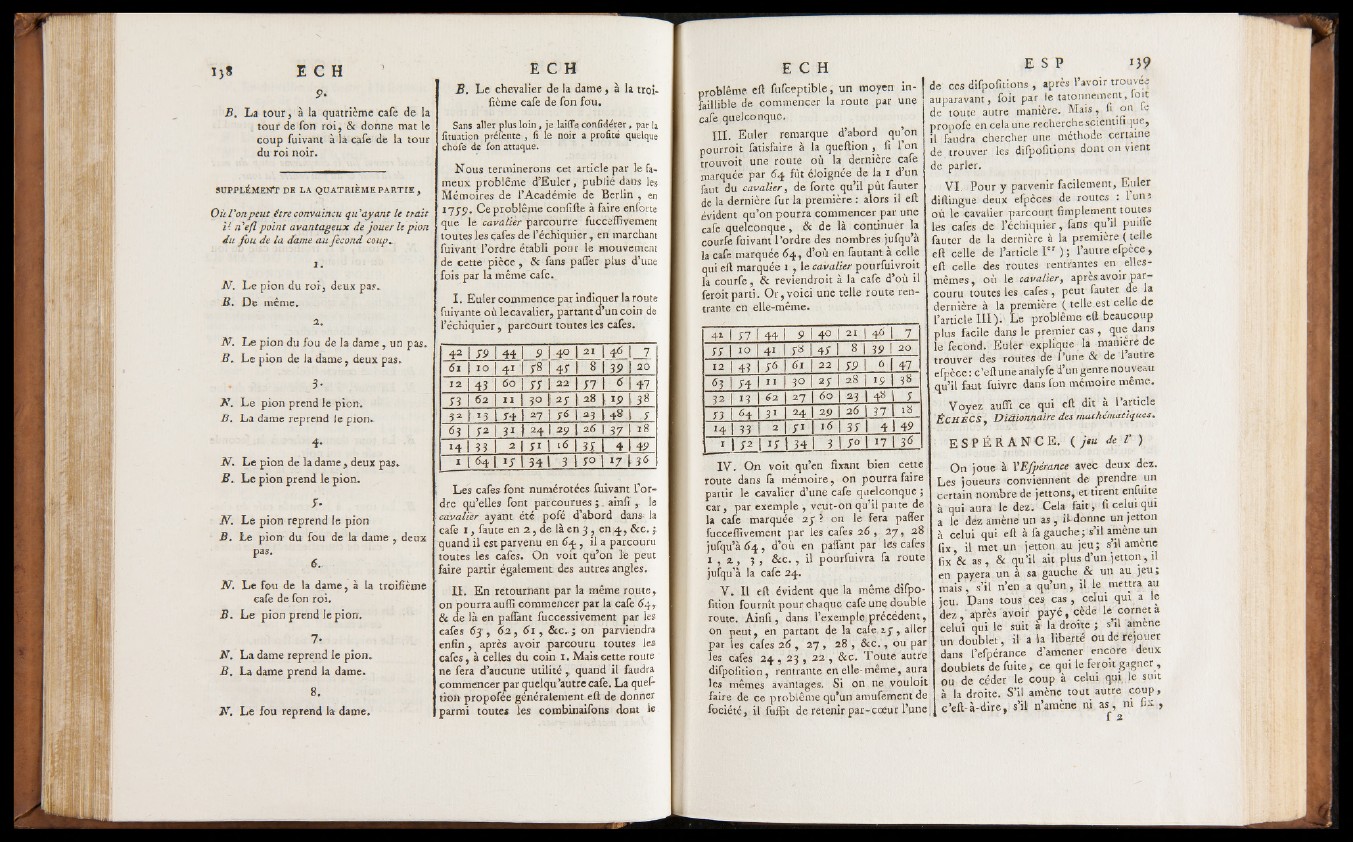 138 E C H
9.
B. La tour, à la quatrième cafe de la
tour de fon roi, & donne mat le
coup fuivant à la cafe de la tour
du roi noir.
SUPPLÉMENT DE LA QUATRIÈME PARTIE,
Où l'on peut être convaincu qu'ayant le trait
il n'eft point avantageux de jouer le pion
du fou de la dame au fecond coup.
1.
N. Le pion du roi, deux pas.
B. De même.
2.
N. Le pion du fou de la dame, un pas.
B. Le pion de la dame, deux pas.
3.
N. Le pion prend le pion.
B. La dame reprend le pion.
4.
N. Le pion de la dame, deux pas.
B. Le pion prend le pion.
5.
N. Le pion reprend le pion
B. Le pion du fou de la dame, deux
pas.
6.
N. Le fou de la dame, à la troifième
cafe de fon roi.
B. Le pion prend le pion.
7.
N. La dame reprend le pion.
B. La dame prend la dame.
8.
N. Le fou reprend la dame.
E C H
B. Le chevalier de la dame, à la troi-
fième cafe de fon fou.
Sans aller plus loin, je laiffe confidérer, par la
fituation préfente, fi le noir a profité quelque
chofe de fon attaque.
Nous terminerons cet article par le fa-
meux problême d'Euler, publié dans les
Mémoires de l'Académie de Berlin, en
1759. Ce problême confifte à faire enforte
que le cavalier parcourre fucceffivement
toutes les cafes de l'échiquier, en marchant
fuivant l'ordre établi pour le mouvement
de cette pièce, & fans paffer plus d'une
fois par la même cafe.
I. Euler commence par indiquer la route
fuivante où le cavalier, partant d'un coin de
l'échiquier, parcourt toutes les cafes.
42 | 59 | 44 | 9 | 40 | 21 | 46 | 7
61 | 10 | 41 | 58 | 45 | 8 | 39 | 20
12 | 43 | 60 | 55 | 22 | 57 | 6 | 47
53 | 62 | 11 | 30 | 25 | 28 | 19 | 38
32 | 13 | 54 | 27 | 56 | 23 | 48 | 5
63 | 52 | 31 | 24 | 29 | 26 | 37 | 18
14 | 33 | 2 | 51 | 16 | 35 | 4 | 49
1 | 64 | 15 | 34 | 3 | 50 | 17 | 36
Les cafes font numérotées fuivant l'or-
dre qu'elles font parcourues; ainfi, le
cavalier ayant été pofé d'abord dans la
cafe 1, faute en 2, de là en 3, en 4, &c.;
quand il est parvenu en 64, il a parcouru
toutes les cafes. On voit qu'on le peut
faire partir également des autres angles.
II. En retournant par la même route,
on pourra auffi commencer par la cafe 64,
& de là en paffant fucceffivement par les
cafes 63, 62, 61, &c.; on parviendra
enfin, après avoir parcouru toutes les
cafes, à celles du coin 1. Mais cette route
ne fera d'aucune utilité, quand il faudra
commencer par quelqu'autre cafe. La quef-
tion propofée généralement eft de donner
parmi toutes les combinaifons dont le
E C H
problême eft fufceptible, un moyen in-
faillible de commencer la route par une
cafe quelconque.
III. Euler remarque d'abord qu'on
pourroit fatisfaire à la queftion, fi l'on
trouvoit une route où la dernière cafe
marquée par 64 fût éloignée de la 1 d'un
faut du cavalier, de forte qu'il pût fauter
de la dernière fur la première: alors il eft
évident qu'on pourra commencer par une
cafe quelconque, & de là continuer la
courfe fuivant l'ordre des nombres jufqu'à
la cafe marquée 64, d'où en fautant à celle
qui eft marquée 1, le cavalier pourfuivroit
la courfe, & reviendroit à la cafe d'où il
feroit parti. Or, voici une telle route ren-
trante en elle-même.
42 | 57 | 44 | 9 | 40 | 21 | 46 | 7
55 | 10 | 41 | 58 | 45 | 8 | 39 | 20
12 | 43 | 56 | 61 | 22 | 59 | 6 | 47
63 | 54 | 11 | 30 | 25 | 28 | 19 | 38
32 | 13 | 62 | 27 | 60 | 23 | 48 | 5
53 | 64 | 31 | 24 | 29 | 26 | 37 | 18
14 | 33 | 2 | 51 | 16 | 35 | 4 | 49
1 | 52 | 15 | 34 | 3 | 50 | 17 | 36
IV. On voit qu'en fixant bien cette
route dans fa mémoire, on pourra faire
partir le cavalier d'une cafe quelconque;
car, par exemple, veut-on qu'il parte de
la cafe marquée 25? on le fera paffer
fucceffivement par les cafes 26, 27, 28
jufqu'à 64, d'où en paffant par les cafes
1, 2, 3, &c., il pourfuivra fa route
jufqu'à la cafe 24.
V. Il eft évident que la même difpo-
fition fournit pour chaque cafe une double
route. Ainfi, dans l'exemple précédent,
on peut, en partant de la cafe 25, aller
par les cafes 26, 27, 28, &c., ou par
les cafes 24, 23, 22, &c. Toute autre
difpofition, rentrante en elle-même, aura
les mêmes avantages. Si on ne vouloit
faire de ce problême qu'un amufement de
fociété, il fuffit de retenir par-cœur l'une
E S P 139
de ces difpofitions, après l'avoir trouvée
auparavant, foit par le tatonnement, foit
de toute autre manière. Mais, fi on fe
propofe en cela une recherche scientifique,
il faudra chercher une méthode certaine
de trouver les difpofitions dont on vient
de parler.
VI. Pour y parvenir facilement, Euler
diftingue deux efpèces de routes: l'une
où le cavalier parcourt fimplement toutes
les cafes de l'échiquier, fans qu'il puiffe
fauter de la dernière à la première (telle
eft celle de l'article Ier); l'autre efpèce,
eft celle des routes rentrantes en elles-
mêmes, où le cavalier, après avoir par-
couru toutes les cafes, peut fauter de la
dernière à la première (telle est celle de
l'article III). Le problême eft beaucoup
plus facile dans le premier cas, que dans
le fecond. Euler explique la manière de
trouver des routes de l'une & de l'autre
efpèce: c'eft une analyfe d'un genre nouveau
qu'il faut fuivre dans fon mémoire même.
Voyez auffi ce qui eft dit à l'article
ÉCHECS, Dictionnaire des mathématiques.
ESPÉRANCE. (jeu de l')
On joue à l'Efpérance avec deux dez.
Les joueurs conviennent de prendre un
certain nombre de jettons, et tirent enfuite
à qui aura le dez. Cela fait, fi celui qui
a le dez amène un as, il donne un jetton
à celui qui eft à fa gauche; s'il amène un
fix, il met un jetton au jeu; s'il amène
fix & as, & qu'il ait plus d'un jetton, il
en payera un à sa gauche & un au jeu;
mais, s'il n'en a qu'un, il le mettra au
jeu. Dans tous ces cas, celui qui a le
dez, après avoir payé, cède le cornet à
celui qui le suit à la droite; s'il amène
un doublet, il a la liberté ou de rejouer
dans l'efpérance d'amener encore deux
doublets de fuite, ce qui le feroit gagner,
ou de céder le coup à celui qui le suit
à la droite. S'il amène tout autre coup,
c'eft-à-dire, s'il n'amène ni as, ni fix,
f 2